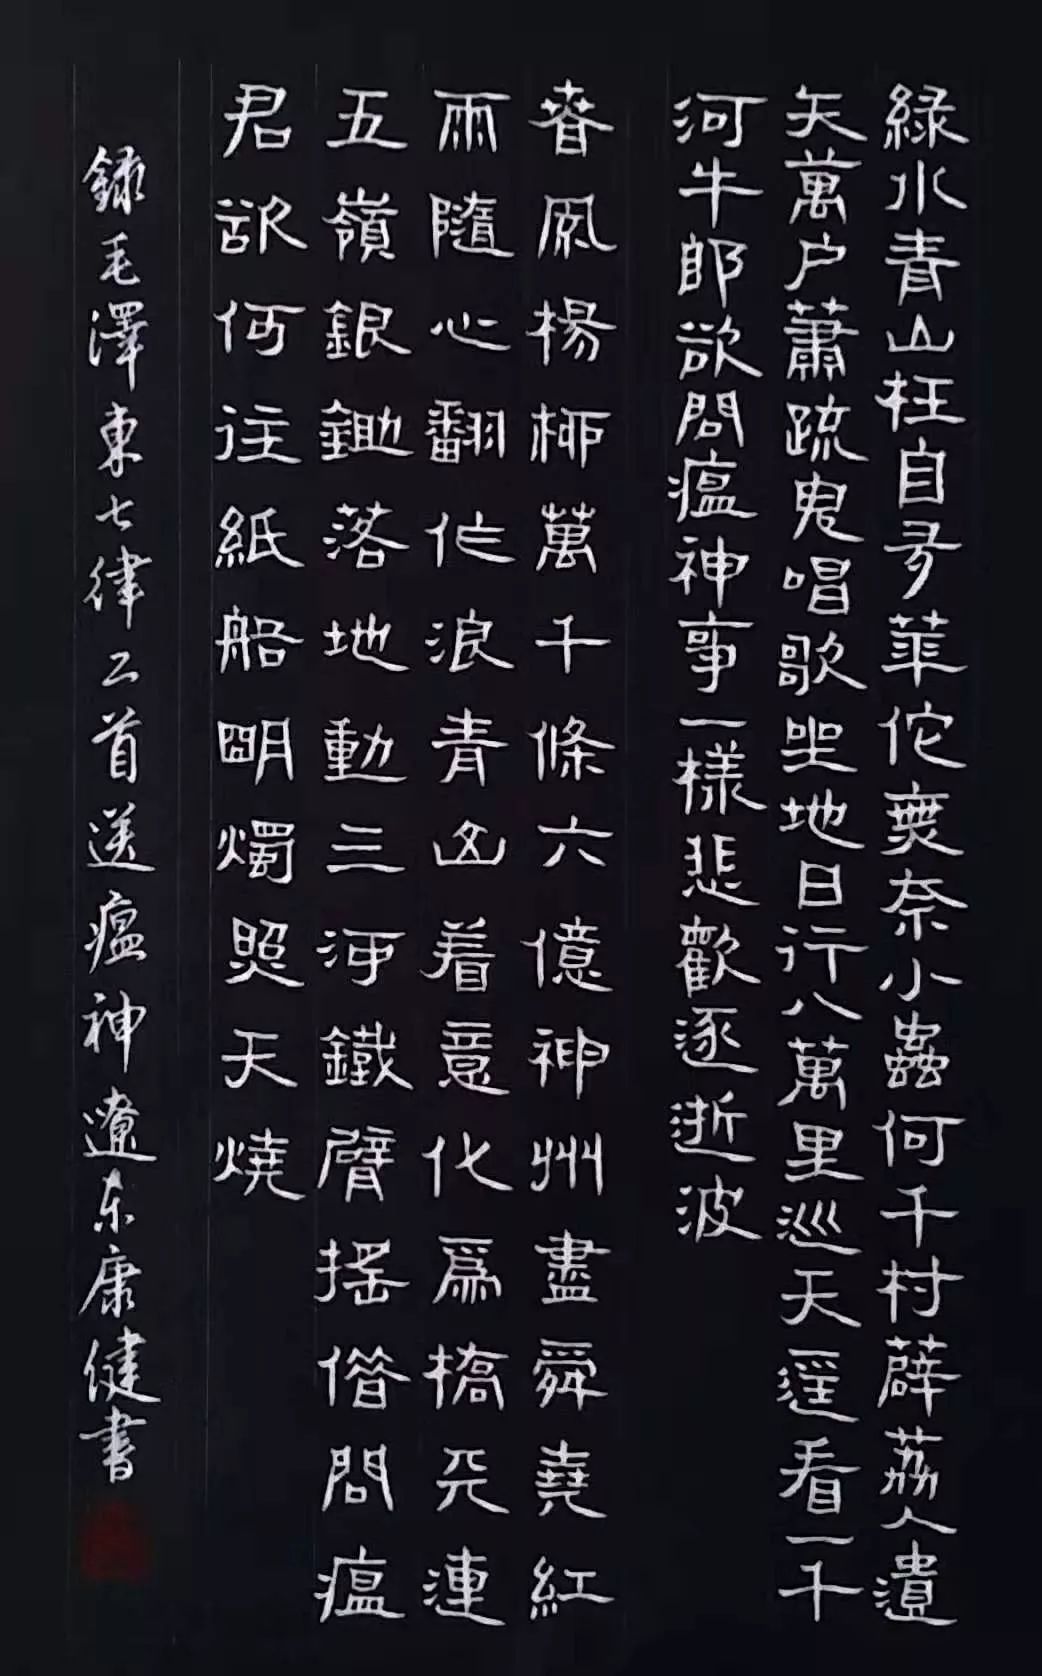 緑水青山枉自多華佗無奈小蟲何千村薜荔人遺
矢萬户蕭疏鬼唱歌坐地日行八萬里巡天遥看一千
河牛郎欲問瘟神事一樣悲歡逐逝波
春風楊柳萬千條六億神州盡舜堯紅
雨隨心翻作浪青山着意化爲橋天連
五嶺銀鋤落地動三河鐵臂摇借問瘟
君欲何往紙船明燭照天燒
録毛澤東七律二首送瘟神遼东康健書